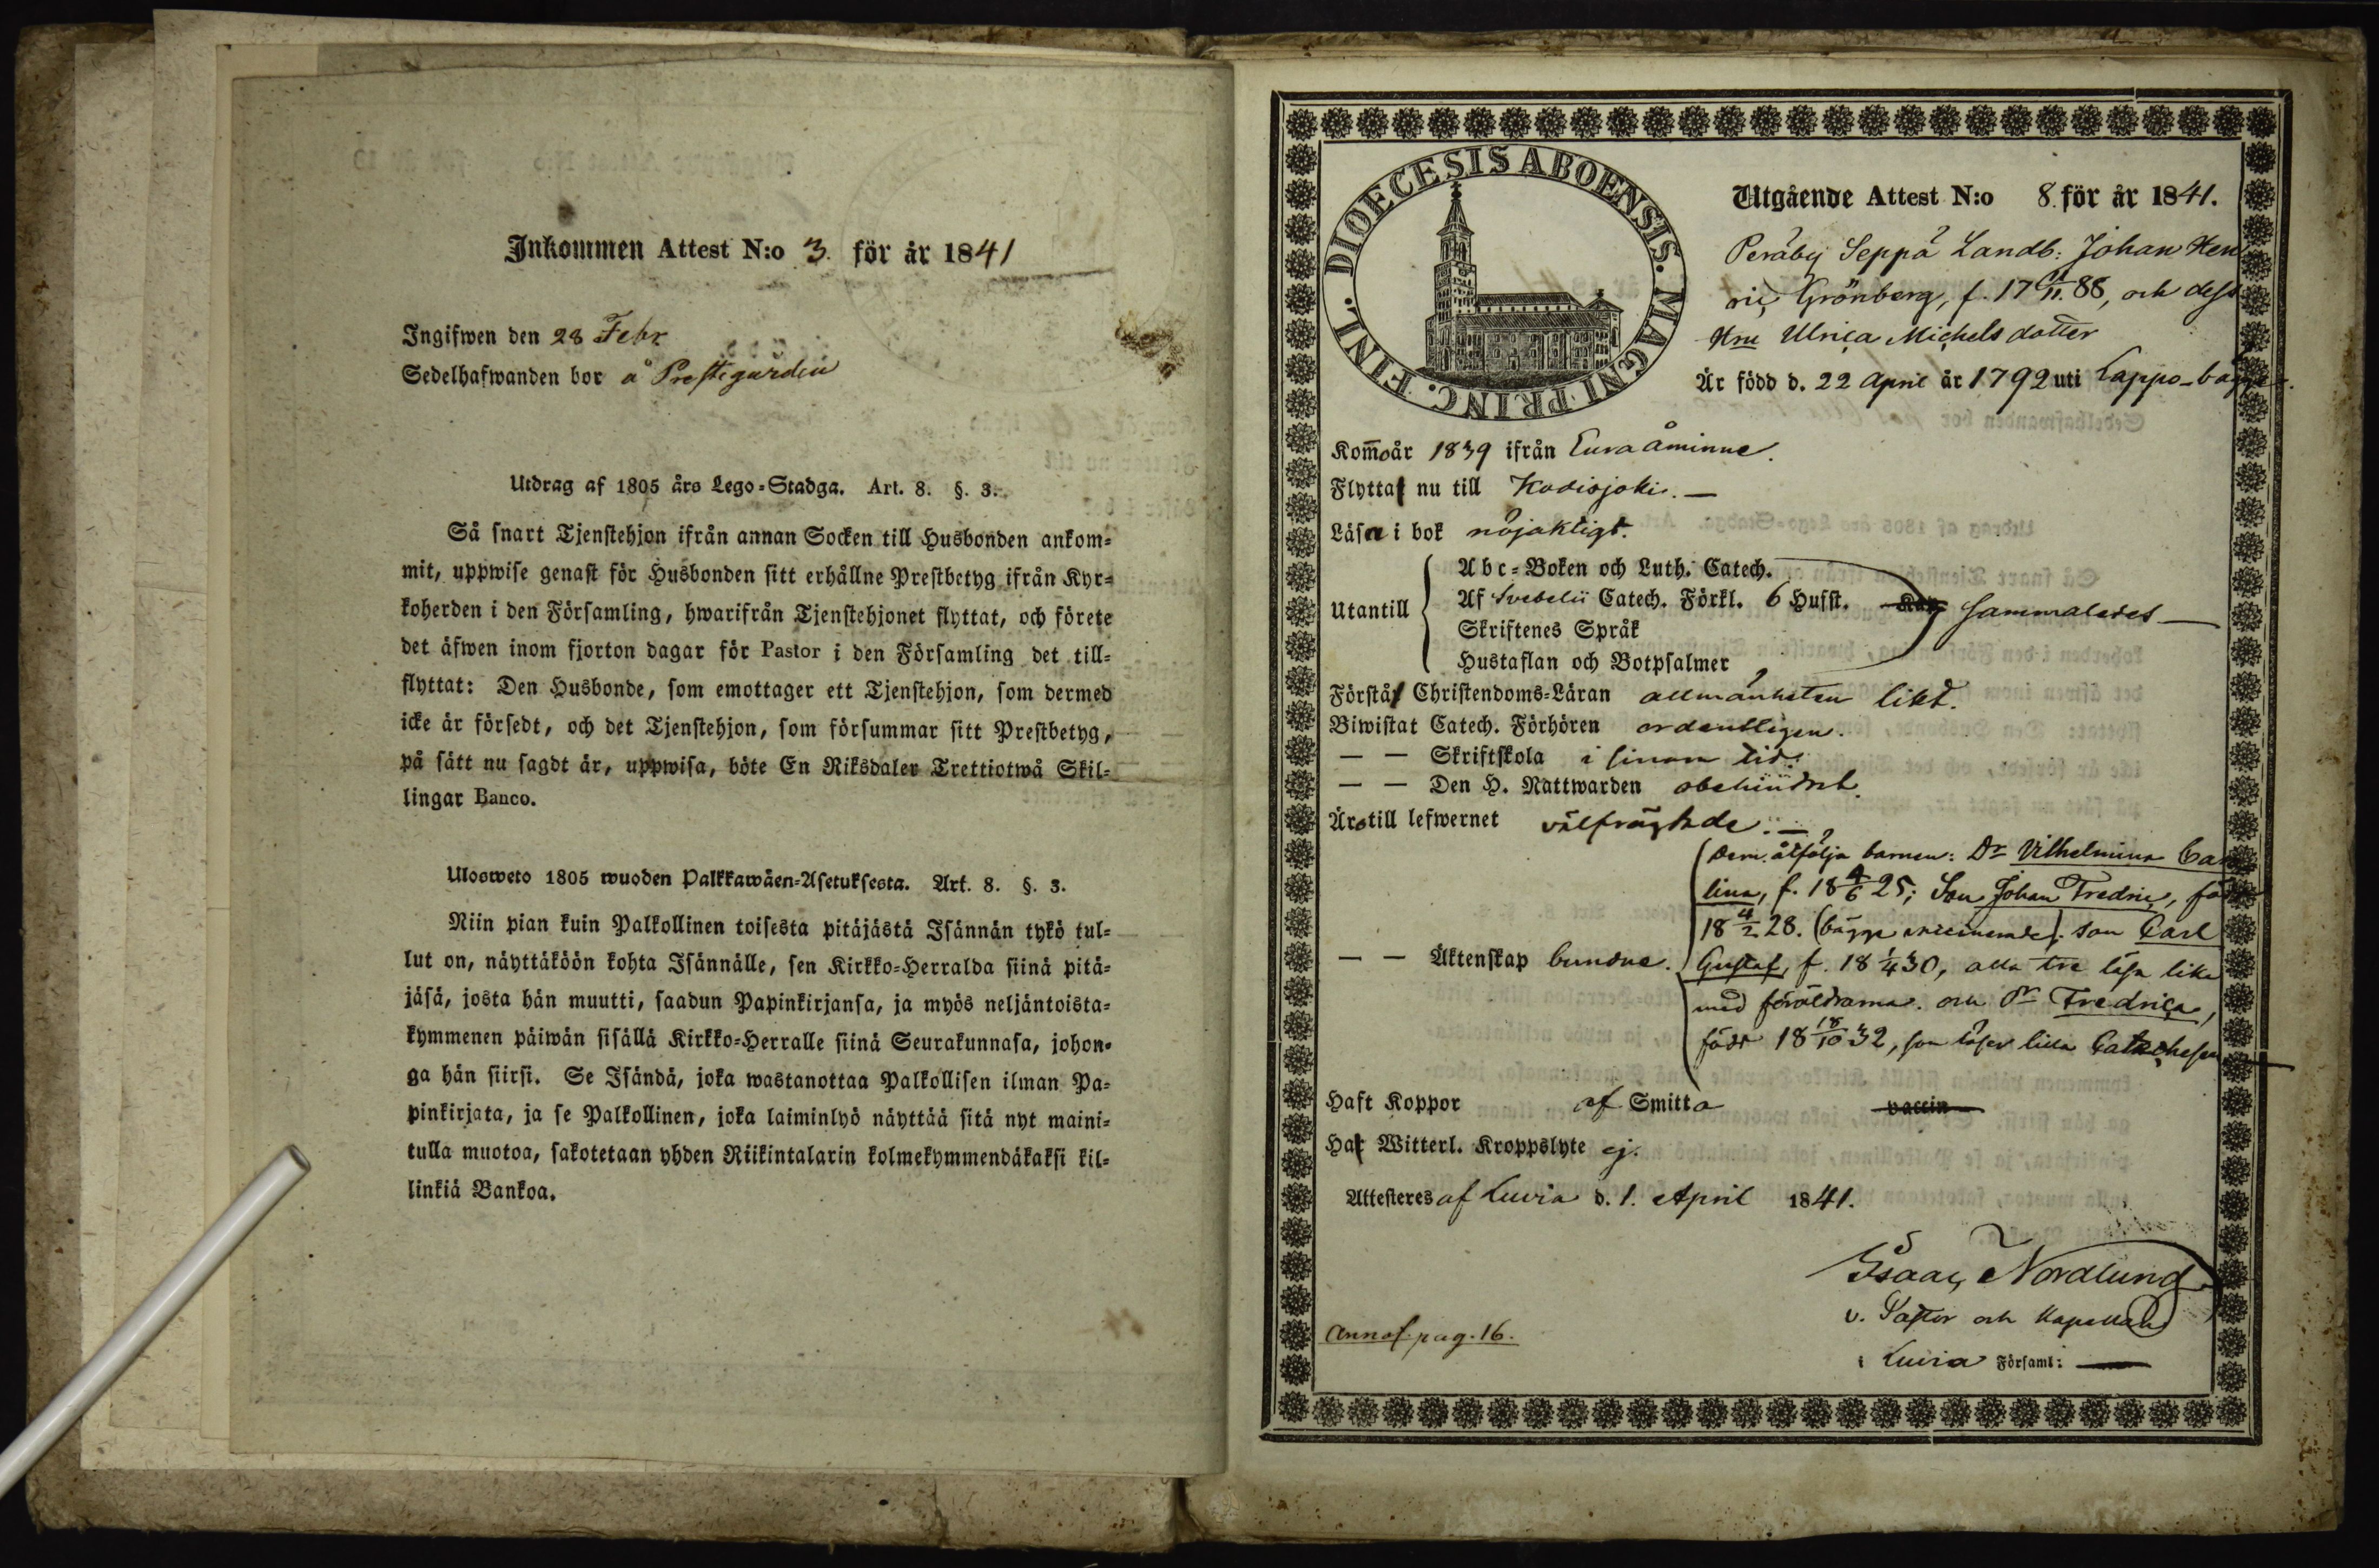 Inkommen Attest N:o 3. för år 1841
Ingifwen den 28 Febr
Sedelhafwanden bor å Prestegården
Utdrag af 1805 års Lego-Stadga. Art. 8. §. 3.
Så snart Tjenstehjon ifrån annan Socken till Husbonden ankom-
mit, uppwise genast för Husbonden sitt erhållne Prestbetyg ifrån Kyr-
koherden i den Församling, hwarifrån Tjenstehjonet flyttat, och förete
det äfwen inom fjorton dagar för Pastor i den Församling det till-
flyttat: Den Husbonde, som emottager ett Tjenstehjon, som dermed
icke är försedt, och det Tjenstehjon, som försummar sitt Prestbetyg,
på sätt nu sagdt är, uppwisa, böte En Riksdaler Trettiotwå Skil-
lingar Banco.
Ulosweto 1805 wuoden Palkkawäen-Asetuksesta. Art. 8. §. 3.
Niin pian kuin Palkollinen toisesta pitäjästä Isännän tykö tul-
lut on, näyttäköön kohta Isännälle, sen Kirkko-Herralda siinä pitä-
jäsä, josta hän muutti, saadun Papinkirjansa, ja myös neljäntoista-
kymmenen päiwän sisällä Kirkko-Herralle siinä Seurakunnasa, johon-
ga hän siirsi. Se Isändä, joka wastanottaa Palkollisen ilman Pa-
pinkirjata, ja se Palkollinen, joka laiminlyö näyttää sitä nyt maini-
tulla muotoa, sakotetaan yhden Riikintalarin kolmekymmendäkaksi kil-
linkiä Bankoa.
DIOECESIS ABOENSIS. MAGNI PRINC. FINL.
Utgående Attest N:o 8. för år 1841.
Peräby Seppä Landb: Johan Hen
ric Grönberg, f. 17 11/11. 88, och dess
Hru Ulrica Michelsdotter
Är född d. 22 April år 1792 uti Lappo-bägge.
Kommo år 1839 ifrån Euraåminne.
Flytta nu till Kodisjoki. —
Läsa i bok nöjaktigt.
Utantill
Abc-Boken och Luth. Catech.
Af Svebelii Catech. Förkl. 6 Husst. sammaledes —
Skriftenes Språk
Hustaflan och Botpsalmer
Förstå Christendoms-Läran allmänheten likt.
Biwistat Catech. Förhören ordentligen.
— — Skriftskola i sinom tid.
— — Den H. Nattwarden obehindrat.
Äro till lefwernet välfrägdade. —
Dem åtfölja barnen: Dr Vilhelmina Caro
lina, f. 18 4/6 25; Son Johan Fredric, född
18 4/2 28. (bägge ). son Carl
— — Äktenskap bundne. Gustaf, f. 18 1/4 30, alla tre läsa lika
med föräldrarna. och Dr Fredrica,
född 18 18/10 32, som läser lilla Catechesen
Haft Koppor af Smitta vaccin
Ha Witterl. Kroppslyte ej.
Attesteres af Luvia d. 1. April 1841.
Isaac Nordlund
v. Pastor och Kapellan
i Luvia Församl: —
Annot. pag. 16.